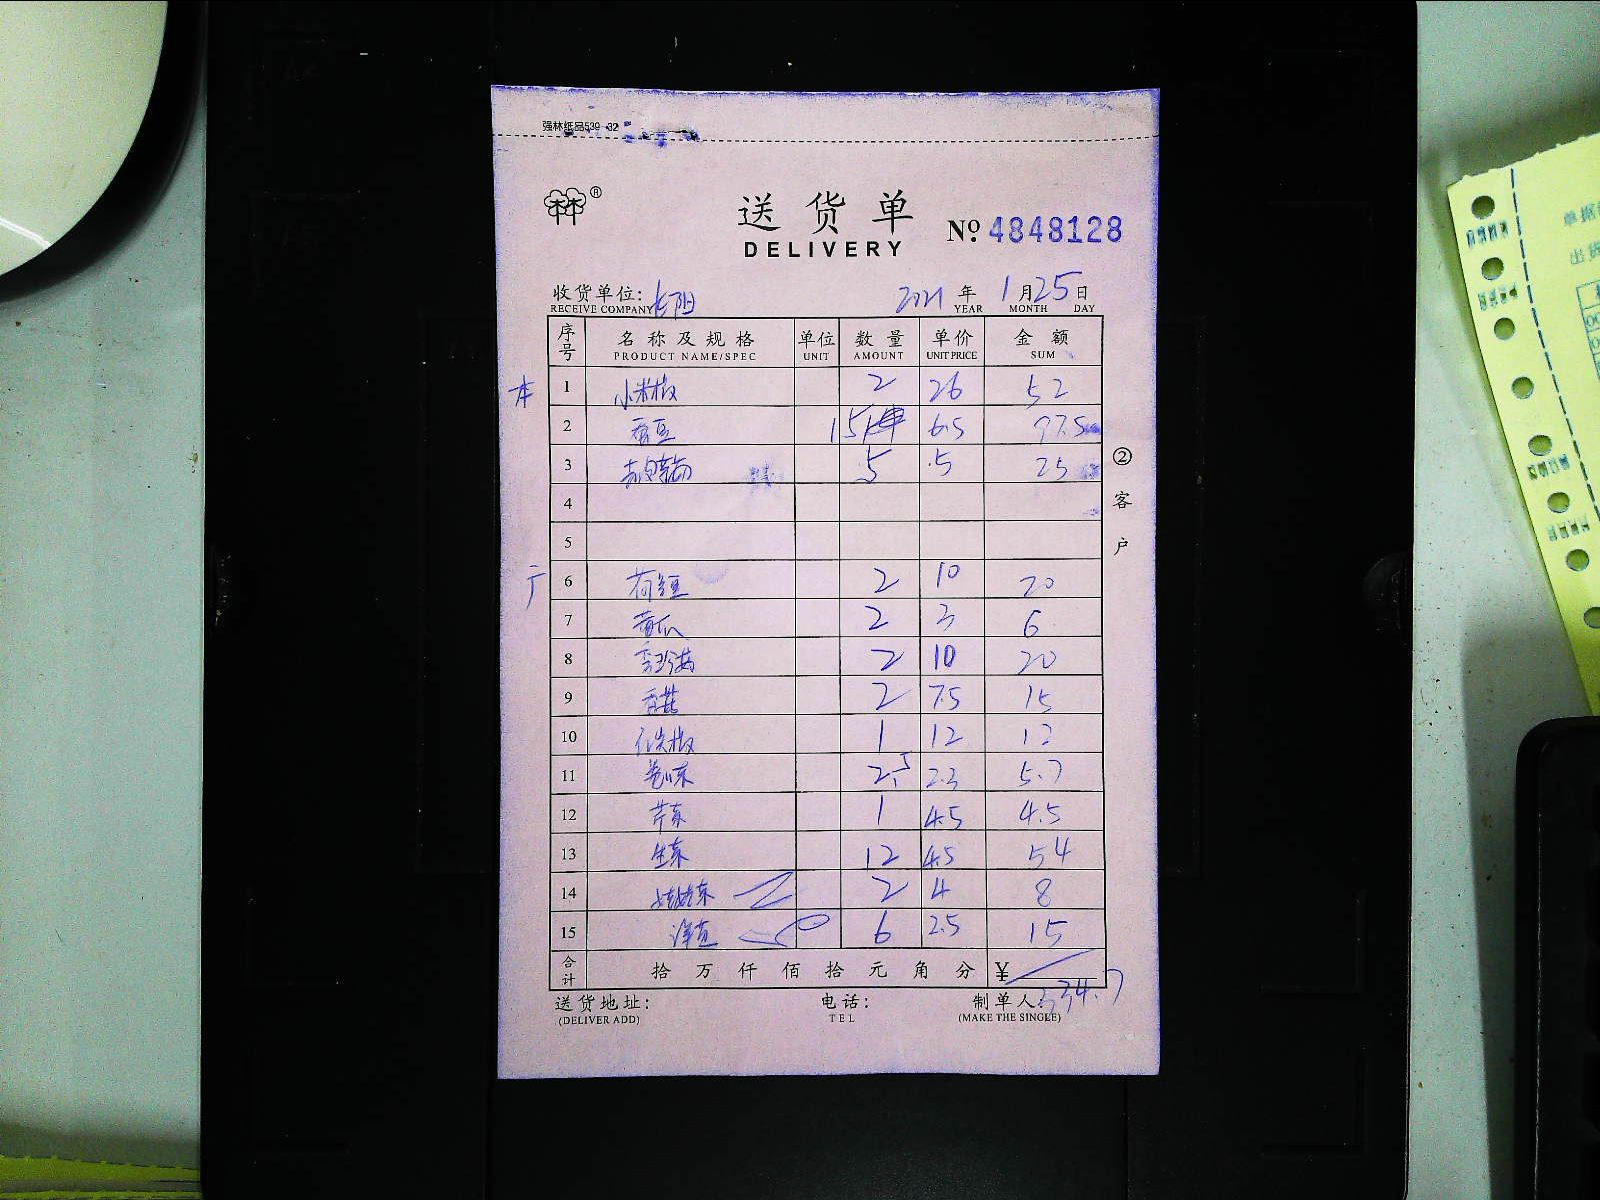 强林纸品539-32
林林®
送货单 № 4848128
DELIVERY
收货单位: 长阳 2021年 1月25日
RECEIVE COMPANY YEAR MONTH DAY
序号 名称及规格 单位 数量 单价 金额
PRODUCT NAME/SPEC UNIT AMOUNT UNIT PRICE SUM
本 1 小米椒 2 26 52
2 蚕豆 15 6.5 97.5
3 5 5 25
4
5
②客户
6 荷短 2 10 20
7 黄瓜 2 3 6
8 2 10 20
9 香菇 2 7.5 15
10 12 12
11 2.5 2.3 5.7
12 芹菜 1 4.5 4.5
13 生菜 12 4.5 54
14 娃娃菜 2 4 8
15 洋芋 6 2.5 15
合计 拾万仟佰拾元角分 ¥ 334.7
送货地址: 电话: 制单人:
(DELIVER ADD) TEL (MAKE THE SINGLE)
单据
出货